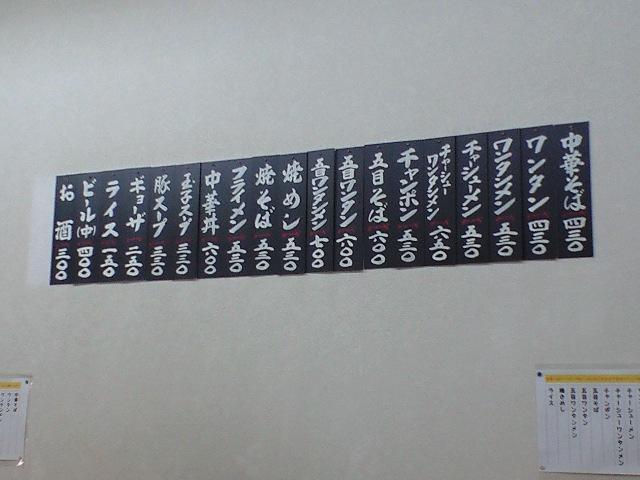 中華そば 四三〇
ワンタン 四三〇
ワンタンメン 五三〇
チャーシューメン 五三〇
チャーシューワンタンメン 六五〇
チャンポン 五三〇
五目そば 六〇〇
五目ワンタン 六〇〇
五目ワンタンメン 七〇〇
焼めし 五三〇
焼そば 五三〇
フライメン 五三〇
中華丼 六〇〇
玉子スープ 三三〇
豚スープ 三三〇
ギョーザ 二五〇
ライス 一五〇
ビール(中) 四〇〇
お酒 三〇〇
チャーシューメン
チャーシューワンタンメン
チャンポン
五目そば
五目ワンタン
五目ワンタンメン
焼きめし
ライス
中華そば
ワンタン
ワンタンメン